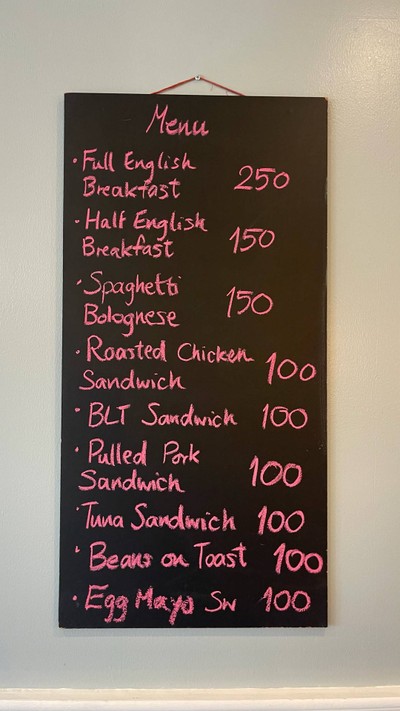 Menu
· Full English
Breakfast 250
· Half English
Breakfast 150
· Spaghetti
Bolognese 150
· Roasted Chicken
Sandwich 100
· BLT Sandwich 100
· Pulled Pork
Sandwich 100
· Tuna Sandwich 100
· Beans on Toast 100
· Egg Mayo Sw 100